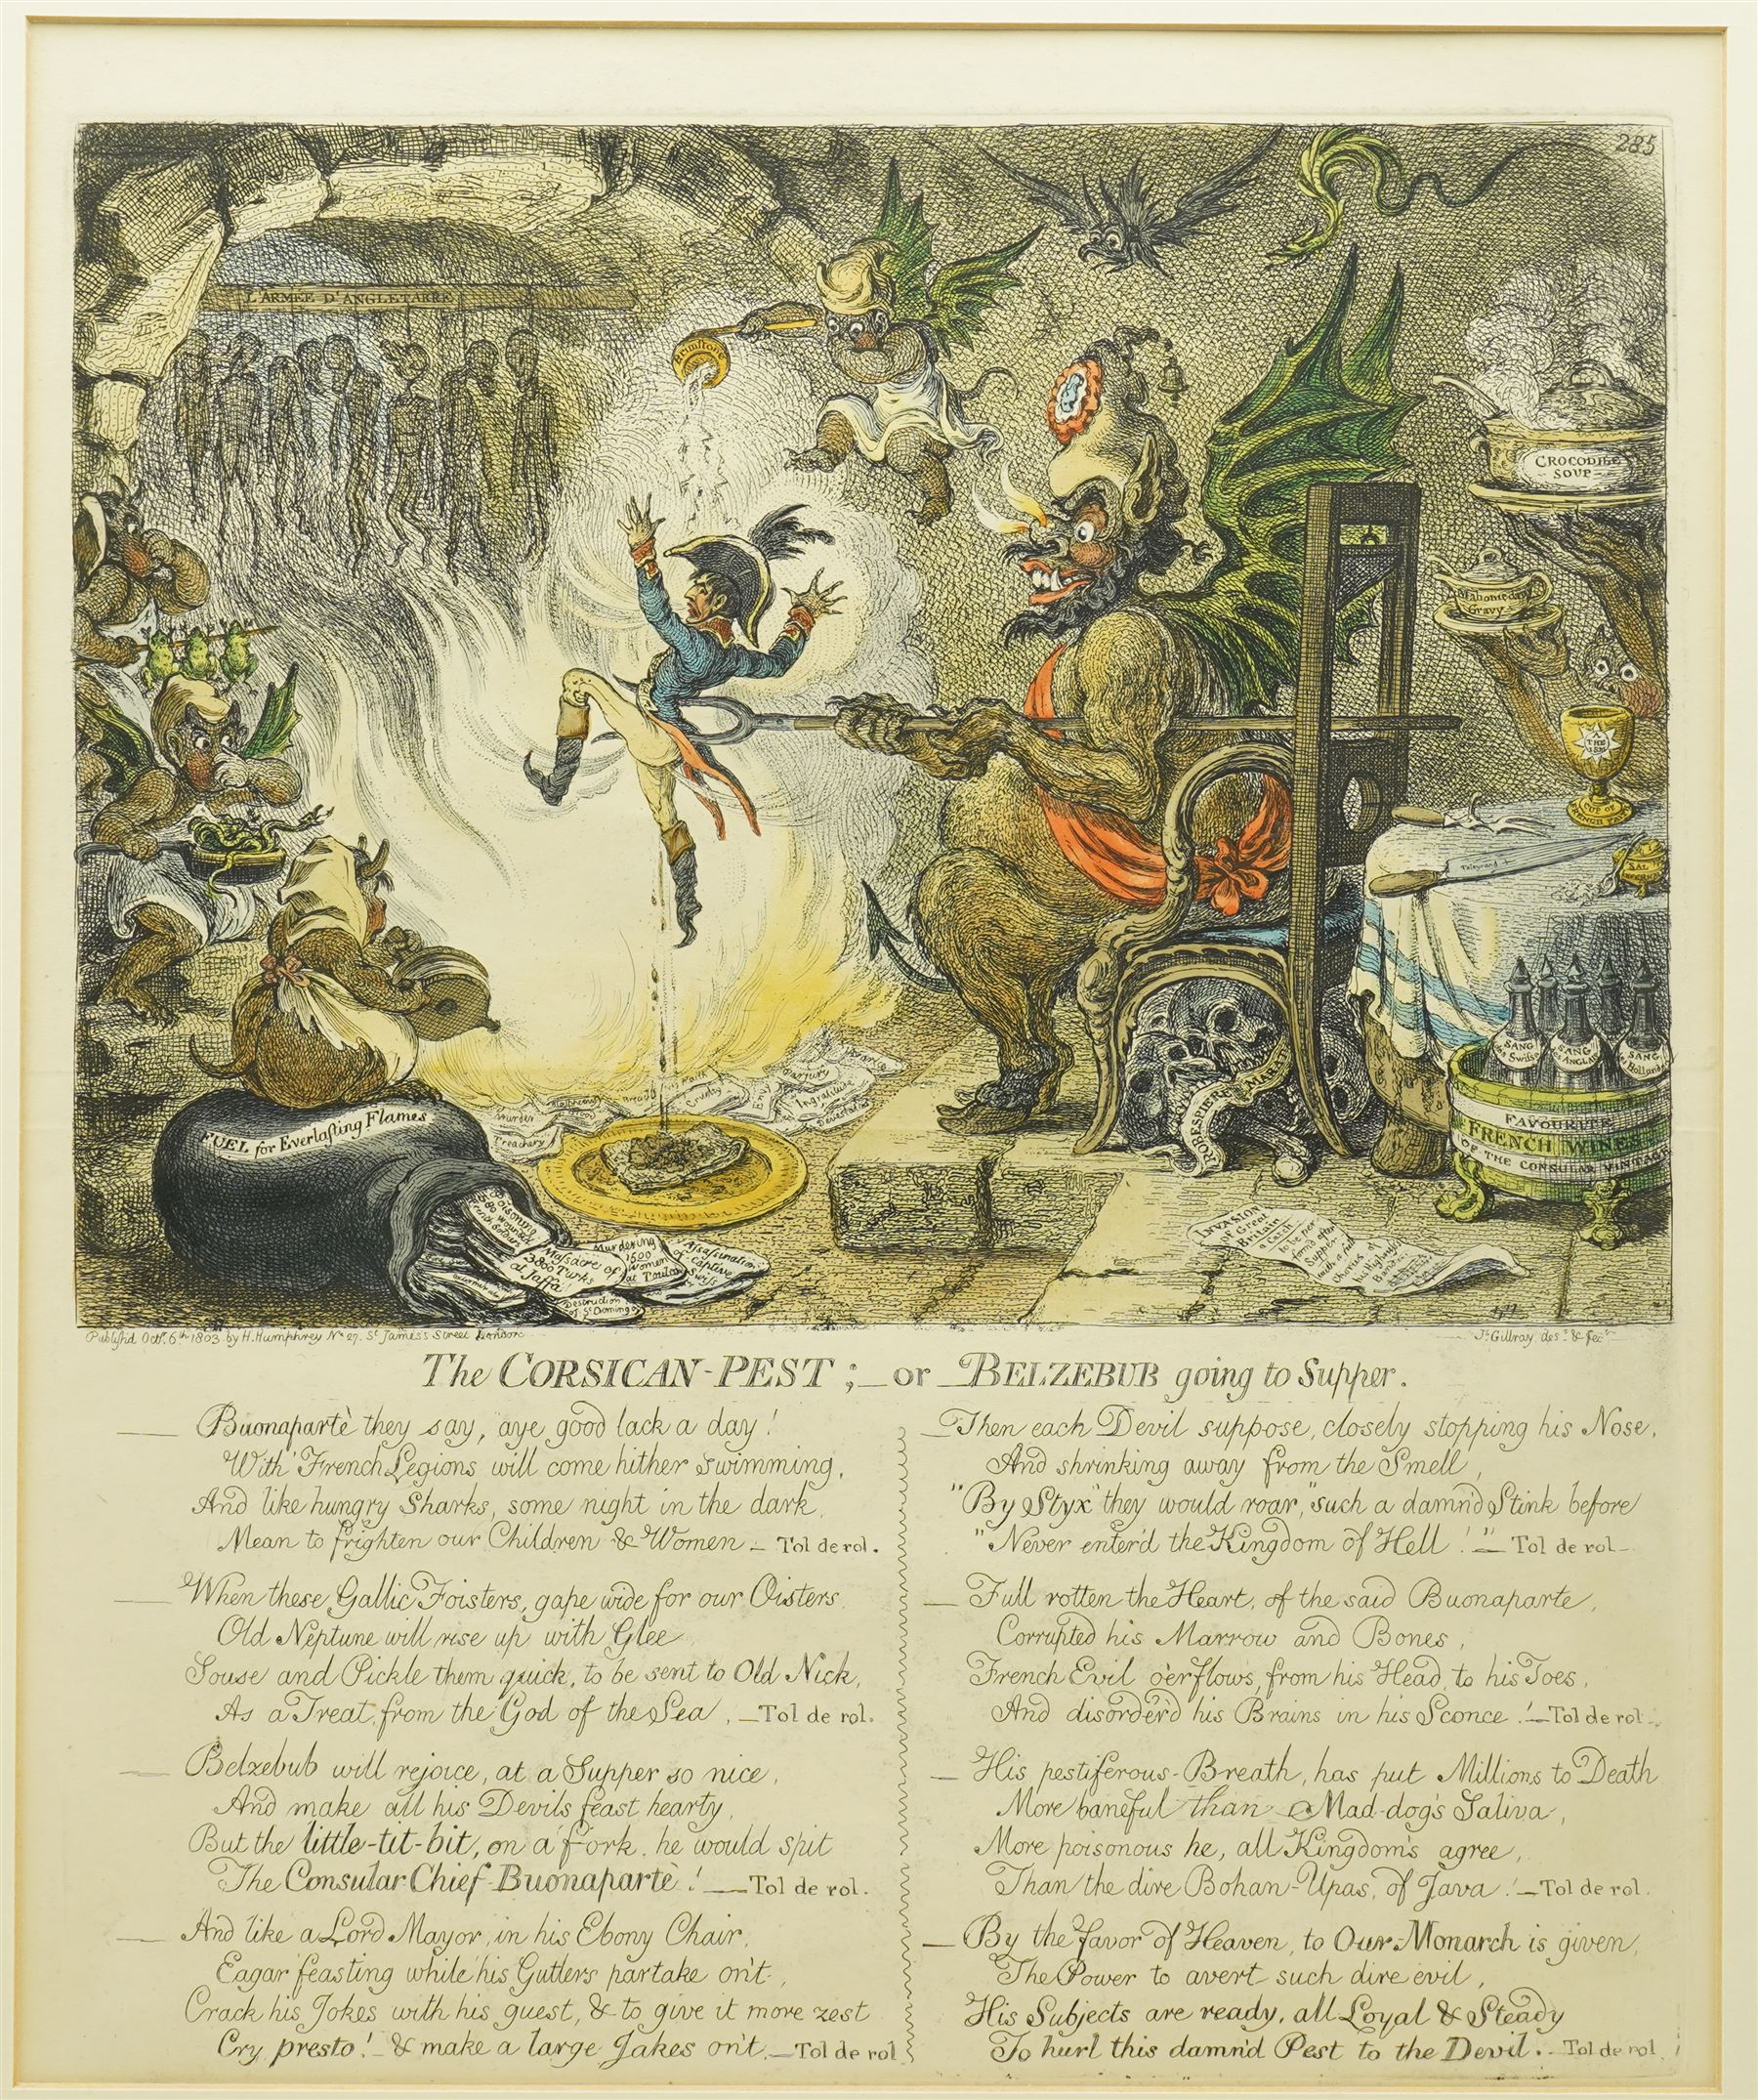 285
L'ARMÉE D'ANGLETARRE
Brimstone
CROCODILE
SOUP
Mahomedan
Gravy
A
THE
ISM
CUP OF
Taleyrand
SAL
SANG
des Swiss
SANG
SANG
Holland
FAVOURITE
FRENCH WINES
OF THE CONSULAR VINTAGE
ROBESPIER
MARAT
FUEL for Everlasting Flames
Murder
Treachery
Cruelty
Envy
Perjury
Ingratitude
Devastation
Poisoning
580 wounded
French Soldiers
Massacre of
3800 Turks
at Jaffa
Murdering
1500
Women
at Toulon
Assassination
of captive
Swiss
Destruction
of St Domingo
INVASION
of Great
Britain
a Catch
to be per
formd after
Supper
with a full
Chorus of
his Highness's
Band
Publish'd Octr. 6th 1803 by H. Humphrey No 27. St James's Street London
Js Gillray, des: & fect
The CORSICAN-PEST;—or—BELZEBUB going to Supper.
—Buonapartè they say, aye good lack a day!
With French Legions will come hither swimming,
And like hungry Sharks, some night in the dark,
Mean to frighten our Children & Women — Tol de rol.
—When these Gallic Foisters, gape wide for our Oisters,
Old Neptune will rise up with Glee,
Souse and Pickle them quick, to be sent to Old Nick,
As a Treat, from the God of the Sea, —Tol de rol.
—Belzebub will rejoice, at a Supper so nice,
And make all his Devils feast hearty,
But the little-tit-bit, on a fork, he would spit
The Consular Chief-Buonapartè! —Tol de rol.
—And like a Lord Mayor, in his Ebony Chair,
Eagar feasting while his Gutlers partake on't,
Crack his Jokes with his guest, & to give it more zest
Cry presto! — & make a large Jakes on't. —Tol de rol
—Then each Devil suppose, closely stopping his Nose,
And shrinking away from the Smell,
"By Styx" they would roar, "such a damn'd Stink before
"Never enter'd the Kingdom of Hell!" — Tol de rol—
—Full rotten the Heart, of the said Buonaparte,
Corrupted his Marrow and Bones,
French Evil o'erflows, from his Head to his Toes,
And disorder'd his Brains in his Sconce! —Tol de rol—
—His pestiferous-Breath, has put Millions to Death
More baneful than a Mad-dog's Saliva,
More poisonous he, all Kingdom's agree,
Than the dire Bohan-Upas, of Java! —Tol de rol.
—By the favor of Heaven, to Our Monarch is given,
The Power to avert such dire evil,
His Subjects are ready, all Loyal & Steady
To hurl this damn'd Pest to the Devil. —Tol de rol.